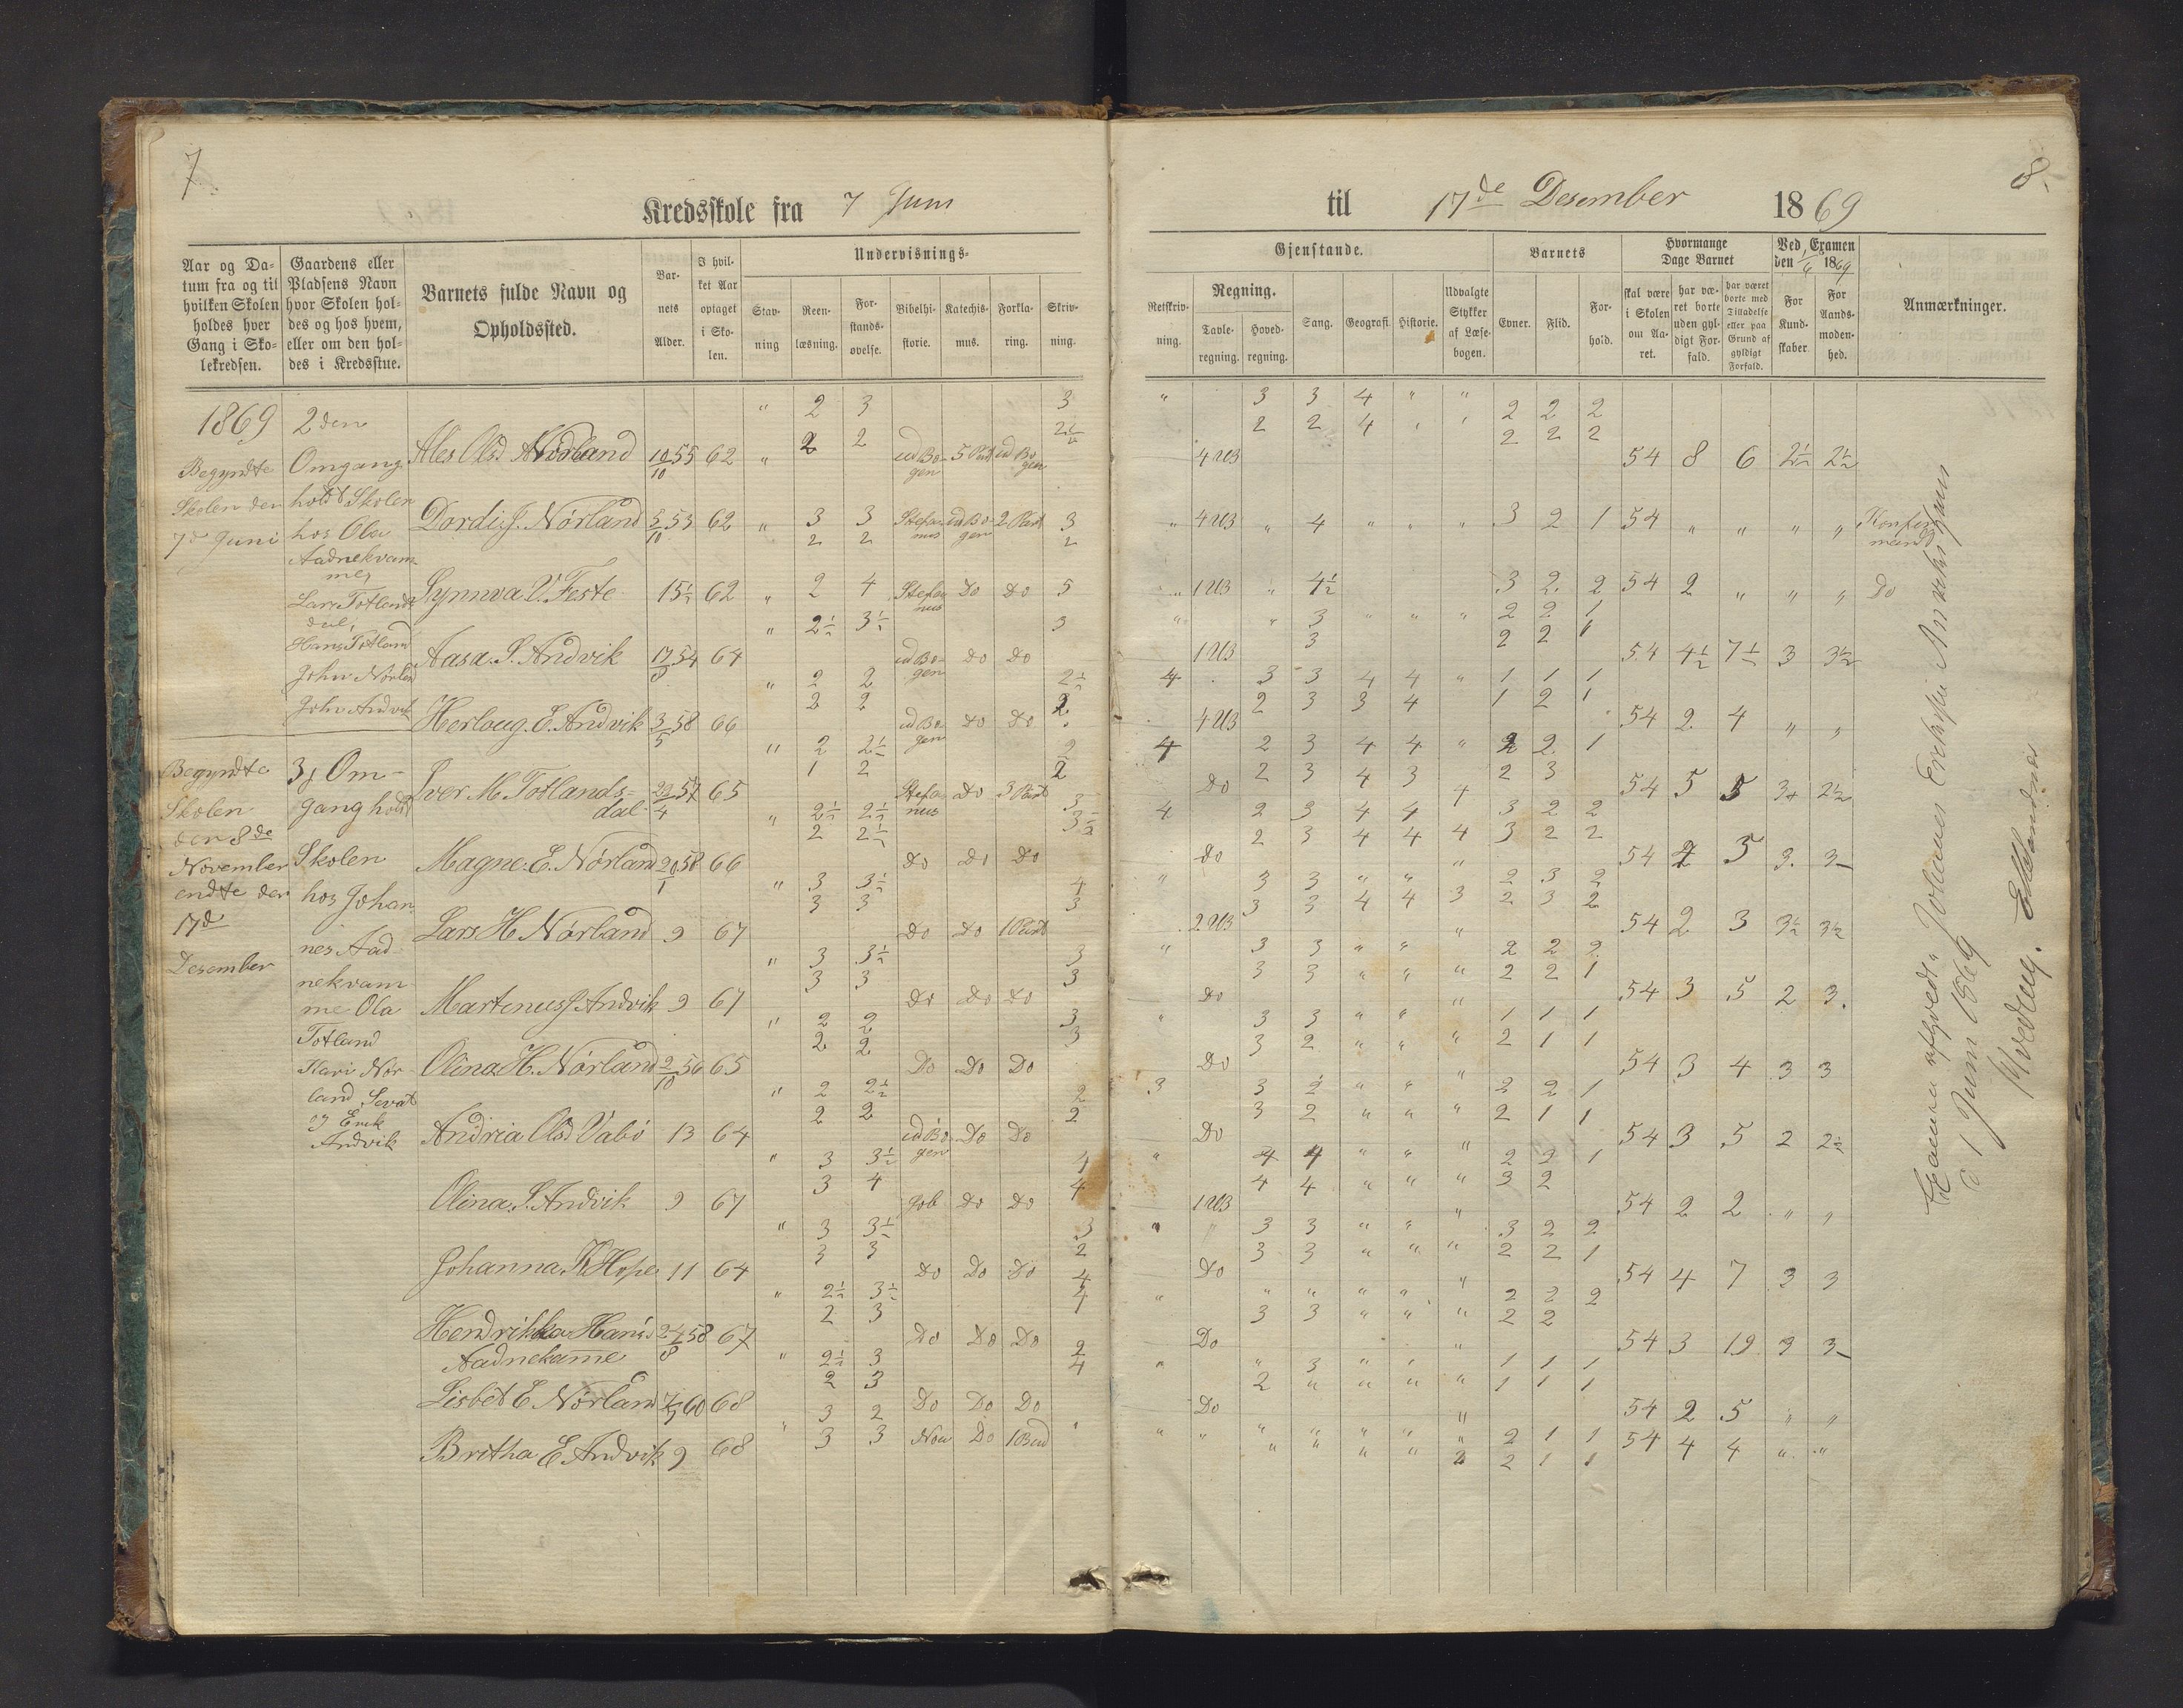 7
Kredsskole fra 7 Juni
Undervisnings-
Aar og Da-
tum fra og til
hvilken Skolen
holdes hver
Gang i Sko-
lekredsen.
Gaardens eller
Pladsens Navn
hvor Skolen hol-
des og hos hvem,
eller om den hol-
des i Kredsstue.
Barnets fulde Navn og
Opholdssted.
Bar-
nets
Alder.
I hvil-
ket Aar
optaget
i Sko-
len.
Stav-
ning
Reen-
læsning.
For-
stands-
øvelse.
Bibelhi-
storie.
Katechis-
mus.
Forkla-
ring.
Skriv-
ning.
1869
Begyndte
Skolen den
7d Juni
2den
Omgang
holdt Skolen
hos Ola
Aadnekvam
me,
Lars Totlands
dal,
Hans Totland
John Nørland
John Andvik
Begyndte
Skolen
den 8de
November
endte den
17d
Desember
3j Om-
gang holdt
Skolen
hos Johan
nes Aad
nekvam
me Ola
Totland
Kari Nør
land
Andvik
" 2 3 3
2 2 2½
Ales Olsd Nørland 10/10 55 62 " ud Bo-gen 5 Part ud Bo-gen
Dordi J. Nørland 5/10 53 62 " 3 3 Stefa-nus ud Bo-gen 2 Part 3
2 2 2
Synnva O. Feste 15½ 62 " 2 4 Stefa-nus Do Do 5
" 2½ 3½ 3
Aasa. S. Andvik 17/8 54 64 ud Bo-gen Do Do
" 2 2 2½
2 2 2
Herlaug. E. Andvik 3/5 58 66 ud Bo-gen Do Do
" 2 2½ 2
1 2 2
Iver M Totlands-
dal 22/4 57 65 Stefa-nus Do 3 Part
" 2½ 2½ 3
2 2½ 3½
Magne. E. Nørland 20/1 58 66 Do Do Do
" 3 3½ 4
3 3 3
Lars H Nørland 9 67 Do Do 1 Part
" 3 3½ 3
3 3 3
Martenus J Andvik 9 67 Do Do Do
" 2 2 3
2 2 3
Olina H. Nørland 2/10 56 65 Do Do Do
" 2 2½ 2
2 2 2
Andria Olsd Vabø 13 64 ud Bo-gen Do Do
" 3 3½ 4
3 4 4
Olina. S. Andvik 9 67 Job Do Do
" 3 3½ 3
3 3 2
Johanna K Hope 11 64 Do Do Do 4
" 2½ 3½
2 3
Hendrikka Hans. 24/8 58 67 Do Do Do
Aadnekamme " 2½ 3 2
2 3 4
Lisbet E Nørland 60 68 Do Do Do
" 3 2
Britha E Andvik 9 68 3 3 Noa Do 1 Bud "
8.
til 17de Desember 1869
Gjenstande.
Barnets
Hvormange
Dage Barnet
Ved Examen
den 1/6 1869
Retskriv-
ning.
Regning.
Tavle-
regning.
Hoved-
regning.
Sang.
Geografi.
Historie.
Udvalgte
Stykker
af Læse-
bogen.
Evner.
Flid.
For-
hold.
skal være
i Skolen
om Aa-
ret.
har væ-
ret borte
uden gyl-
digt For-
fald.
har været
borte med
Tilladelse
eller paa
Grund af
gyldigt
Forfald.
For
Kund-
skaber
For
Aands-
moden-
hed.
Anmærkninger.
" 3 3 4 " " 2 2 2
2 2 4 " " 2 2 2
54 8 6 2½ 2½
" " 4 " " " 3 2 1 54 " " " " Konfir-
mand
" " 4½ 3 2 2 54 2 " " " Do
" " 3 " " " 2 2 1
3 2 2 "
54 4½ 7½ 3 3½
4 3 3 4 4 " 1 1 1
2 3 3 4 1 2 1
54 2 4 " "
4 2 3 4 4 " 2 2 1
Do 2 3 4 3 2 3
54 5 5 3+ 2½
4 2 3 4 4 4 3 2 2
2 3 4 4 4 3 2 2
Do 54 4 5 3. 3-
" 3 3 " " " 2 3 2
3 3 4 4 3 2 3 2
54 2 3 3½ 3½
" 3 3 " " " 2 2 2
3 3 " " " 2 2 1
Do 54 3 5 2 3.
" 3 3 " " " 1 1 1
3 2 " " " 2 1 1
Do 54 3 4 3 3
3 3 2 " " " 2 2 1
3 2 " " " 2 1 1
Do 54 3 5 2 2½
" 4 4 " " " 2 2 1
4 4 " " " 3 2
54 2 2 " "
" 3 3 " " " 3 2 2
3 3 " " " 2 2 1
Do 54 4 7 3 3
" " " " " " 2 2 2
3 3 " " " 2 2
Do 54 3 19 3 3-
" " 3 " " " 1 1 1
2 " " " " 1 1 1
Do 54 2 5 " "
" " " " " " " 2 1 1 54 4 4 " "
" " " " 2 2 1 1
Johannes
1 Juni 1869